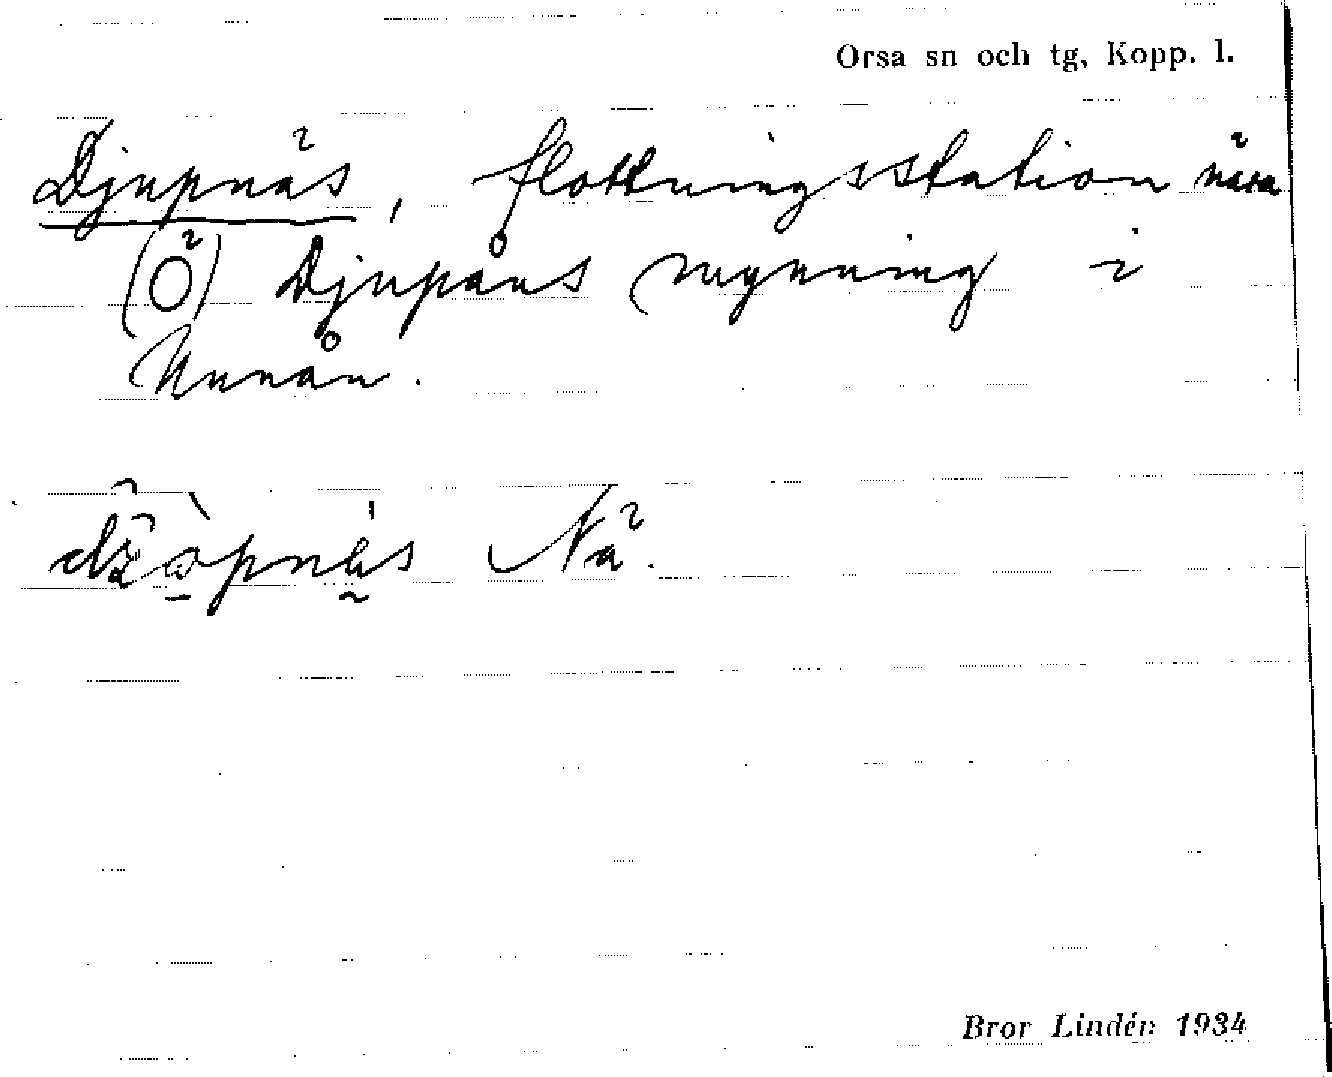 Orsa sn och tg, Kopp. l.
Djupnäs, flottningsstation nära
(Ö) Djupåns mynning i
Unnån.
Nä.
Bror Lindén 1934